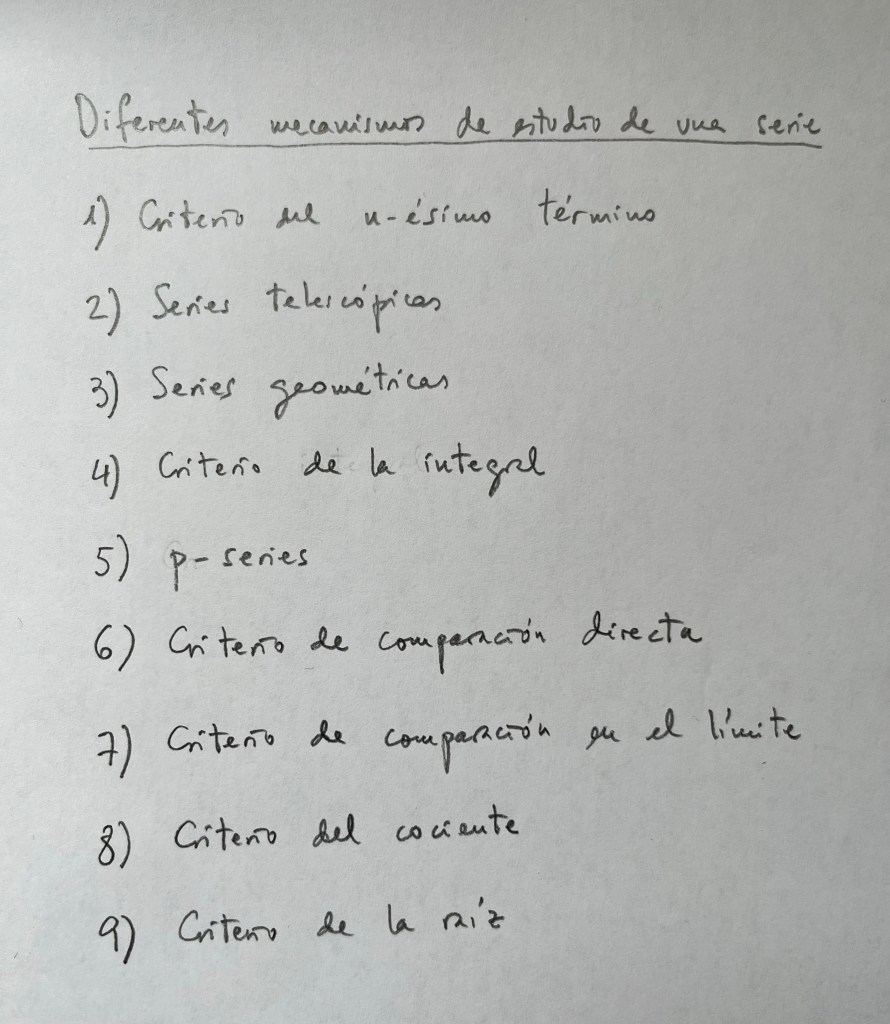 Diferentes mecanismos de estudio de una serie
1) Criterio del n-ésimo término
2) Series telescópicas
3) Series geométricas
4) Criterio de la integral
5) p-series
6) Criterio de comparación directa
7) Criterio de comparación en el límite
8) Criterio del cociente
9) Criterio de la raíz